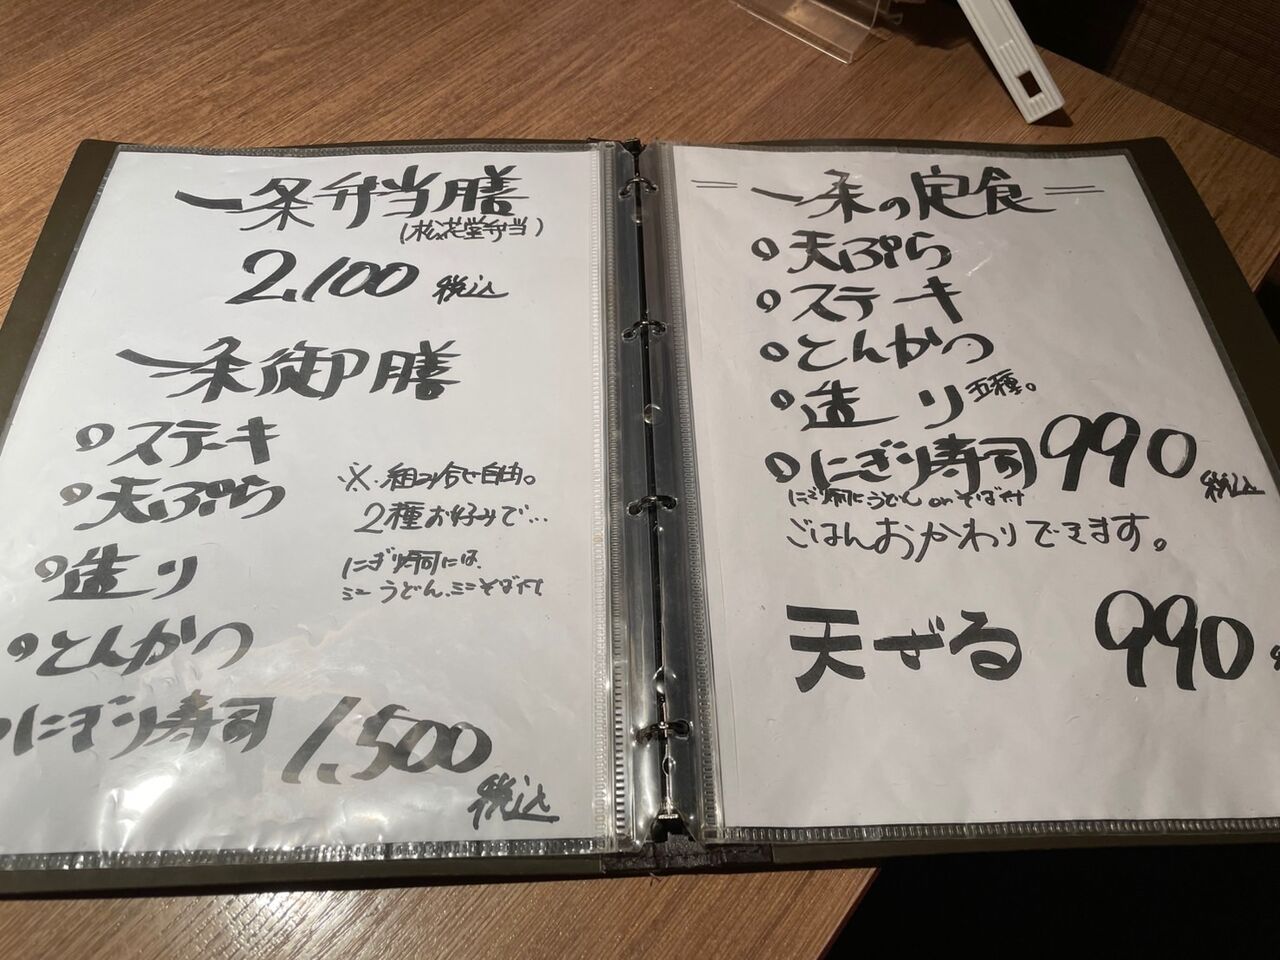 一条弁当膳
(松花堂弁当)
2,100 税込
一条御膳
ステーキ
天ぷら
造り
とんかつ
にぎり寿司 1,500
税込
※組み合せ自由。
2種お好みで…
にぎり寿司には、
ミニうどん、ミニそば付
＝一条の定食＝
天ぷら
ステーキ
とんかつ
造り 五種。
にぎり寿司 990 税込
にぎり寿司にうどん or そば付
ごはんおかわりできます。
天ざる 990